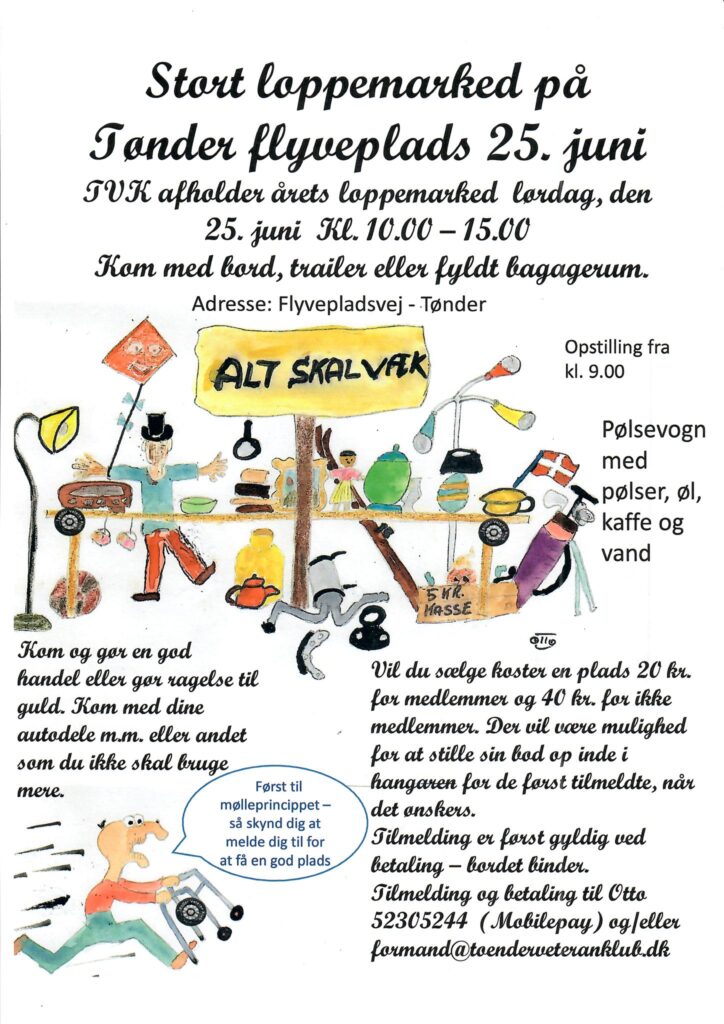 Stort loppemarked på
Tønder flyveplads 25. juni
TVK afholder årets loppemarked lørdag, den
25. juni Kl. 10.00 – 15.00
Kom med bord, trailer eller fyldt bagagerum.
Adresse: Flyvepladsvej - Tønder
Opstilling fra
kl. 9.00
ALT SKAL VÆK
Pølsevogn
med
pølser, øl,
kaffe og
vand
5 KR.
KASSE
Otto
Kom og gør en god
handel eller gør ragelse til
guld. Kom med dine
autodele m.m. eller andet
som du ikke skal bruge
mere.
Først til
mølleprincippet –
så skynd dig at
melde dig til for
at få en god plads
Vil du sælge koster en plads 20 kr.
for medlemmer og 40 kr. for ikke
medlemmer. Der vil være mulighed
for at stille sin bod op inde i
hangaren for de først tilmeldte, når
det ønskers.
Tilmelding er først gyldig ved
betaling – bordet binder.
Tilmelding og betaling til Otto
52305244 (Mobilepay) og/eller
formand@toenderveteranklub.dk